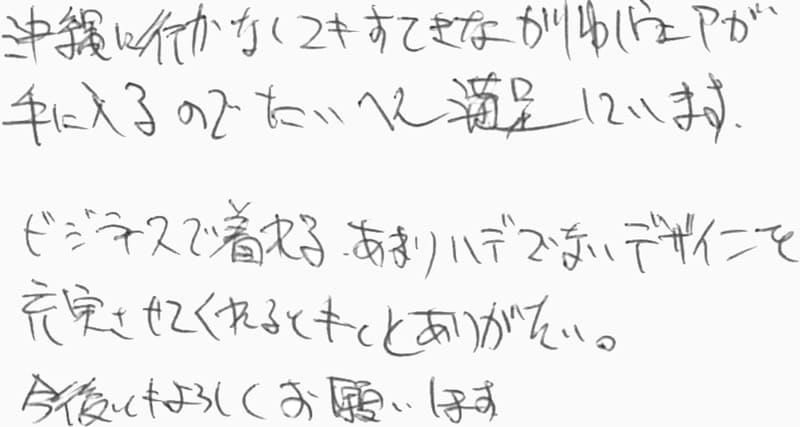 沖縄に行かなくてもすてきなかりゆしウェアが
手に入るのでたいへん満足しています.
ビジネスで着れる、あまりハデでないデザインを
充実させてくれるともっとありがたい。
今後ともよろしくお願いします